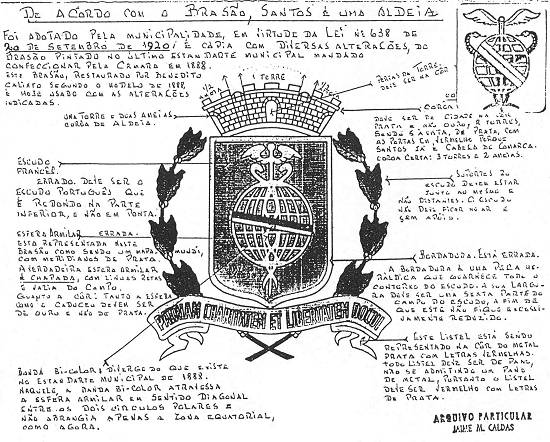 DE ACORDO COM O BRASÃO, SANTOS É UMA ALDEIA
FOI ADOTADO PELA MUNICIPALIDADE, EM VIRTUDE DA LEI Nº 638 DE
20 DE SETEMBRO DE 1920; E CÓPIA COM DIVERSAS ALTERAÇÕES, DO
BRASÃO PINTADO NO ÚLTIMO ESTANDARTE MUNICIPAL MANDADO
CONFECCIONAR PELA CÂMARA EM 1888.
ESTE BRASÃO, RESTAURADO POR BENEDITO
CALIXTO SEGUNDO O MODELO DE 1888,
É HOJE USADO COM AS ALTERAÇÕES
INDICADAS.
1 TORRE
PORTAS DA TORRE
DEVE SER NA CÔR
UMA TORRE E DUAS AMEIAS
COROA DE ALDEIA.
COROA:
DEVE SER DE CIDADE
PRATA E NÃO OURO, 8 TORRES,
SENDO 5 À VISTA, DE PRATA, COM
AS PORTAS EM VERMELHO PORQUE
SANTOS JÁ É CABEÇA DE COMARCA.
COROA CERTA: 3 TORRES E 2 AMEIAS.
ESCUDO
FRANCÊS.
ERRADO. DEVE SER O
ESCUDO PORTUGUÊS QUE
É REDONDO NA PARTE
INFERIOR, E NÃO EM PONTA.
SUPORTES DO
ESCUDO DEVEM ESTAR
JUNTO AO MESMO E
NÃO DISTANTES. O ESCUDO
NÃO DEVE FICAR NO AR E
SEM APOIO.
ESFERA ARMILAR ERRADA.
ESTÁ REPRESENTADA NESTE
BRASÃO COMO SENDO UM MAPA MUNDIS,
COM MERIDIANOS DE PRATA.
A VERDADEIRA ESFERA ARMILAR
É CHAPADA, COM LINHAS RETAS
E VAZIA DO CAMPO.
QUANTO A CÔR: TANTO A ESFERA
COMO O CADUCEU DEVEM SER
DE OURO E NÃO DE PRATA.
BORDADURA. ESTÁ ERRADA.
A BORDADURA É UMA PEÇA HE-
RÁLDICA QUE GUARNECE TODO O
CONTORNO DO ESCUDO. A SUA LARGU-
RA DEVE SER UMA SEXTA PARTE DO
CAMPO DO ESCUDO, A FIM DE
QUE ESTE NÃO FIQUE EXCESSI-
VAMENTE REDUZIDO.
PATRIAM CHARITATEM ET LIBERTATEM DOCUI
ESTE LISTEL ESTÁ SENDO
REPRESENTADO NA CÔR DO METAL
PRATA COM LETRAS VERMELHAS.
TODO LISTEL DEVE SER DE PANO,
NÃO SE ADMITINDO UM PANO
DE METAL, PORTANTO O LISTEL
DEVE SER VERMELHO COM LETRAS
DE PRATA.
BANDA BI-COLOR: DIVERGE DO QUE EXISTE
NO ESTANDARTE MUNICIPAL DE 1888.
NAQUELE, A BANDA BI-COLOR ATRAVESSA
A ESFERA ARMILAR EM SENTIDO DIAGONAL
ENTRE OS DOIS CÍRCULOS POLARES E
NÃO ABRANGIA APENAS A ZONA EQUATORIAL,
COMO AGORA.
ARQUIVO PARTICULAR
JAIME M. CALDAS